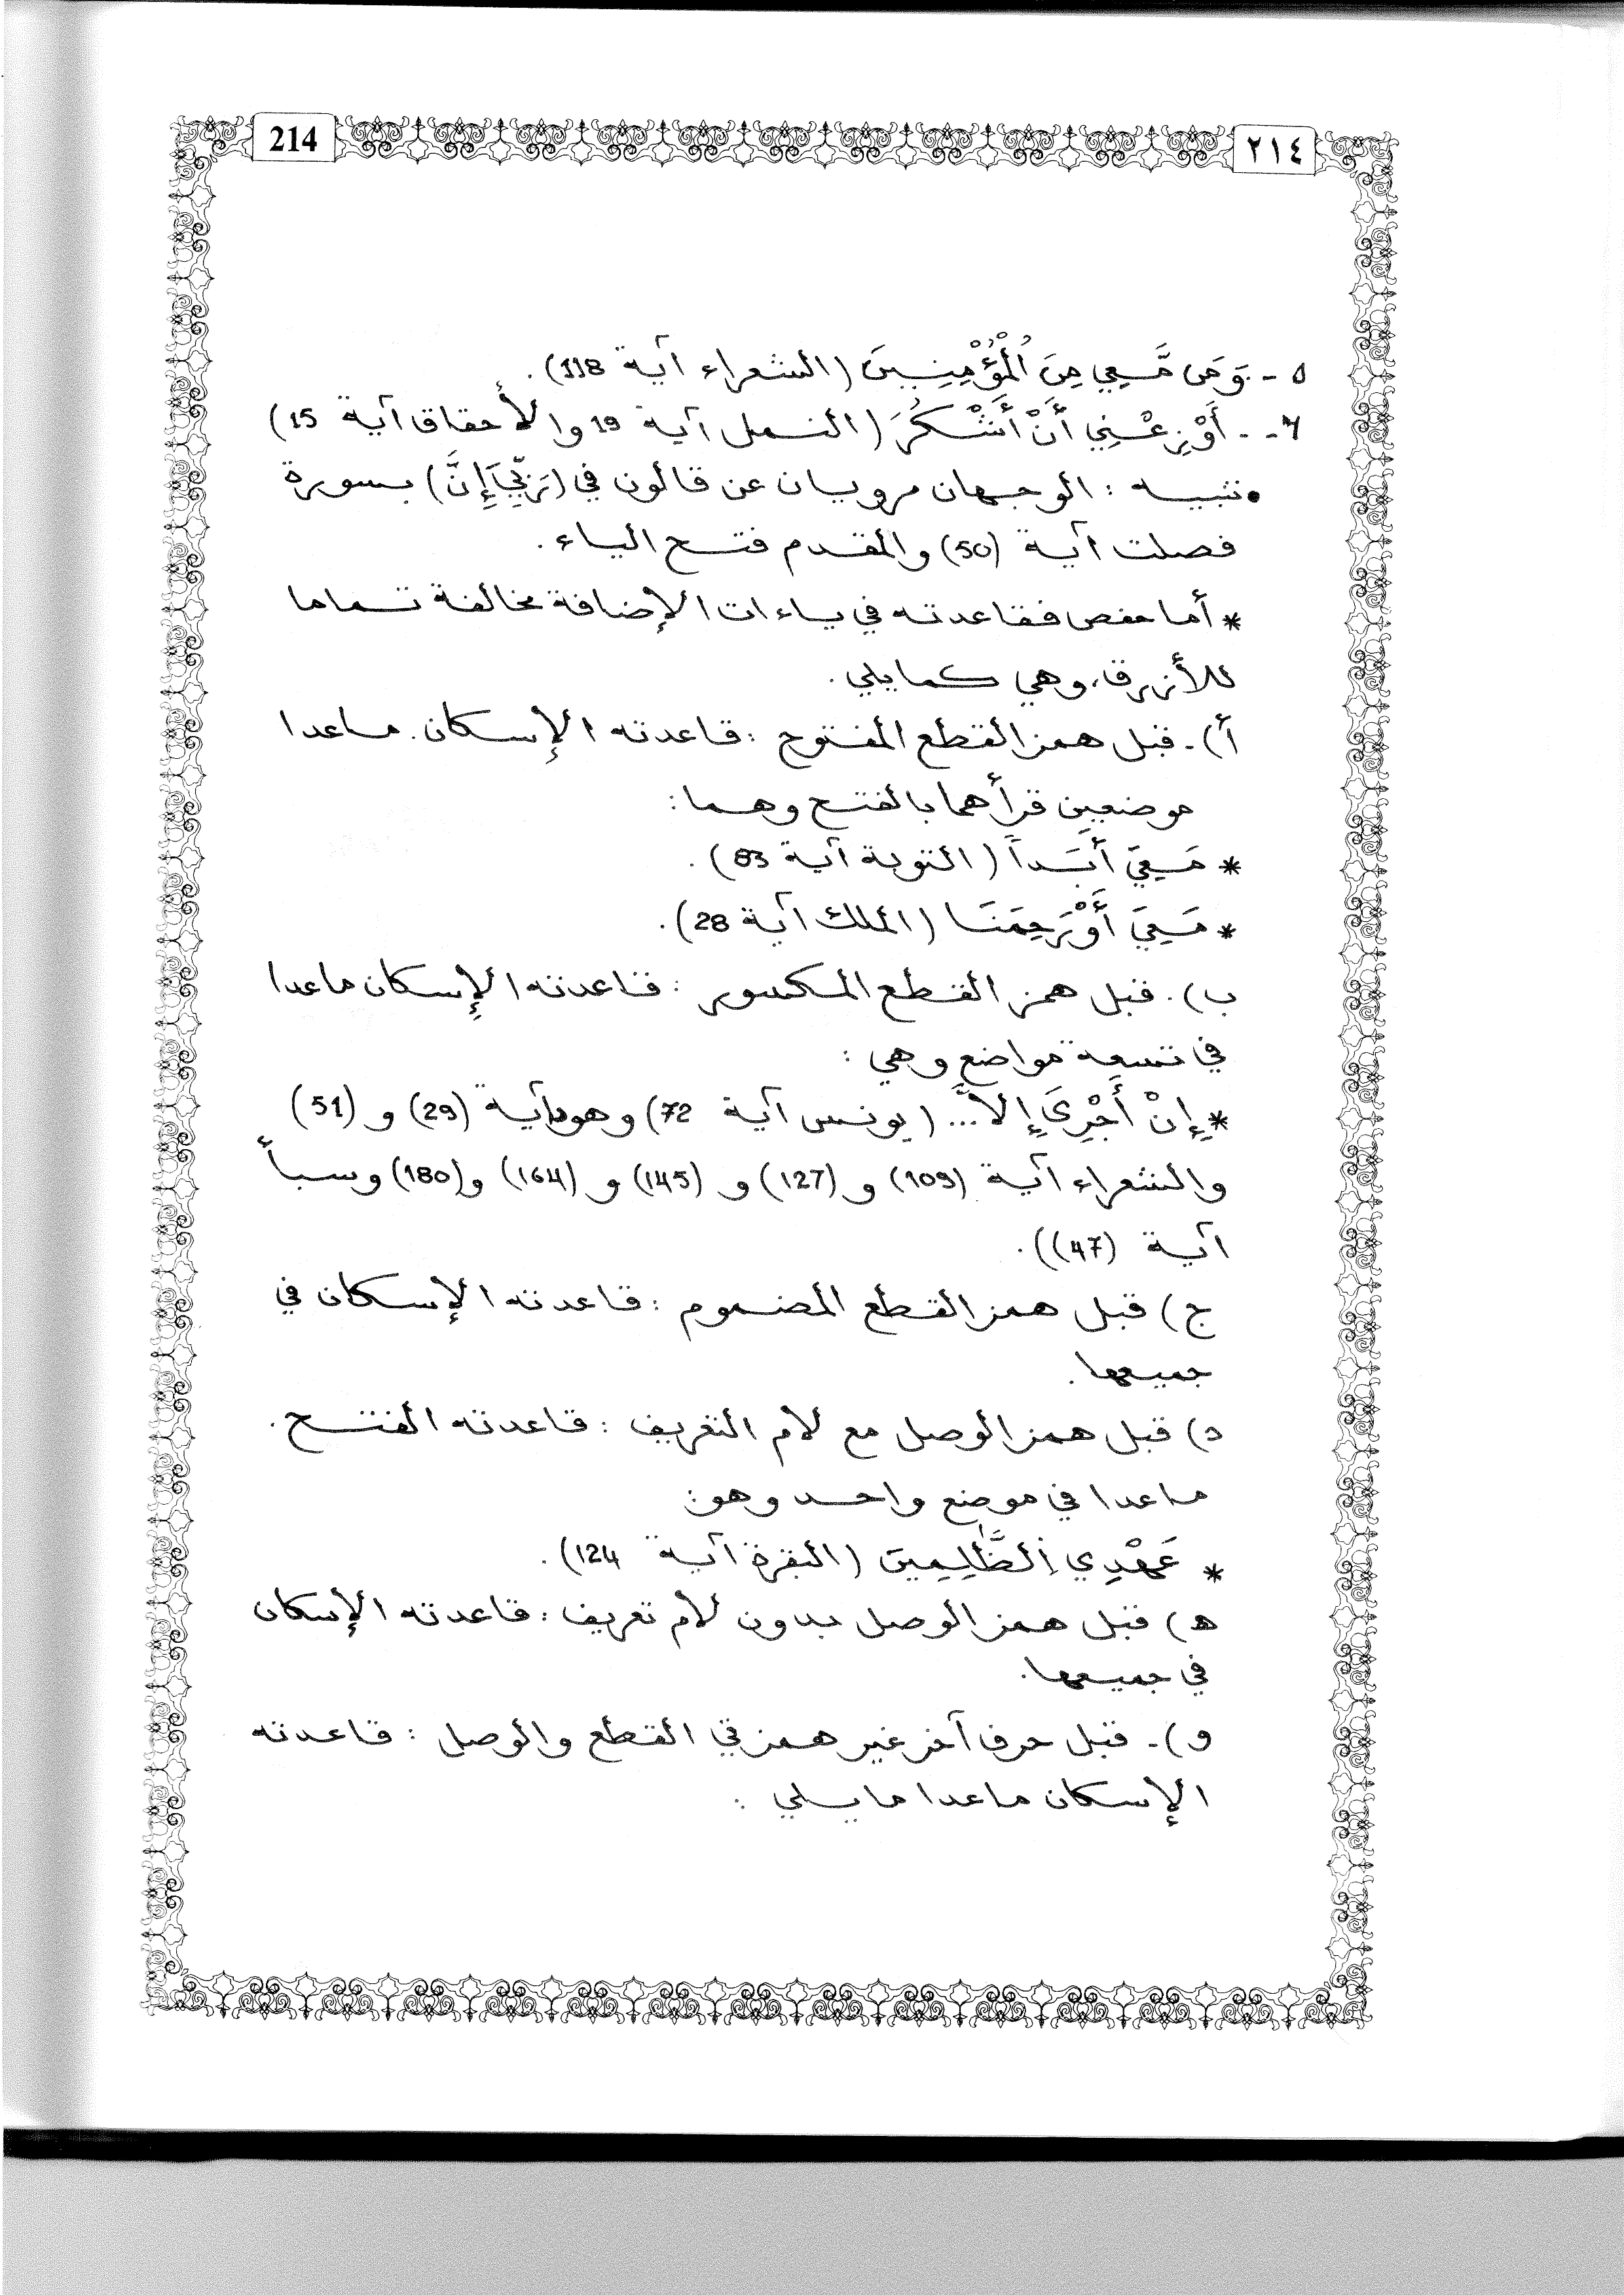 214
٢١٤
٥ - وَمَن مَّعِي مِنَ اَلْمُؤْمِنِينَ (الشعراء آية 118).
٦ - أَوْزِعْنِي أَنْ أَشْكُرَ (النمل آية 19 والأحقاق آية 15)
• تنبيه : الوجهان مرويان عن قالون في (رَبِّيَ إِنَّ) بسورة
فصلت آية (50) والمقدم فتح الياء.
* أما حفص فقاعدته في ياءات الإضافة مخالفة تماما
للأزرق، وهي كما يلي.
أ) - قبل همز القطع المفتوح : قاعدته الإسكان. ماعدا
موضعين قرأهما بالفتح وهما :
* مَعِيَ أَبَداً (التوبة آية 83).
* مَعِيَ أَوْ رَحِمَنَا (الملك آية 28).
ب). قبل همز القطع المكسور : قاعدته الإسكان ماعدا
في تسعة مواضع وهي :
* إِنْ أَجْرِيَ إِلاَّ ... (يونس آية 72) وهود آية (29) و (51)
والشعراء آية (109) و (127) و (145) و (164) و (180) وسبأ
آية (47)).
ج) قبل همز القطع المضموم : قاعدته الإسكان في
جميعها.
د) قبل همز الوصل مع لام التعريف : قاعدته الفتح.
ماعدا في موضع واحد وهو:
* عَهْدِي اِلظَّٰلِمِينَ (البقرة آية 124).
ه) قبل همز الوصل بدون لام تعريف : قاعدته الإسكان
في جميعها.
و) - قبل حرف آخر غير همزتي القطع والوصل : قاعدته
الإسكان ماعدا مايلي :